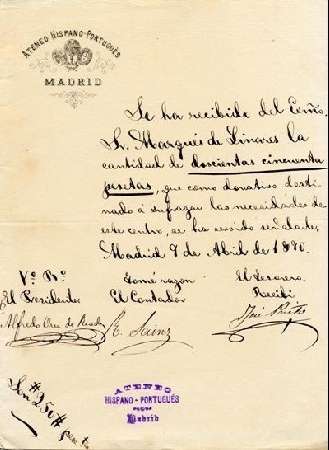 ATENEO HISPANO-PORTUGUÉS
MADRID
Se ha recibido del Excmo.
Sr. Marqués de Linares la
cantidad de doscientas cincuenta
pesetas, que como donativo desti-
nado á sufragar las necesidades de
este centro, se ha servido señalar.
Madrid 9 de Abril de 1890.
Vº Bº
El Presidente
Tomé razon
El Contador
El Tesorero
Recibí
Alfredo
E. Sainz
José
Son #250# pesetas
ATENEO
HISPANO-PORTUGUÉS
Madrid